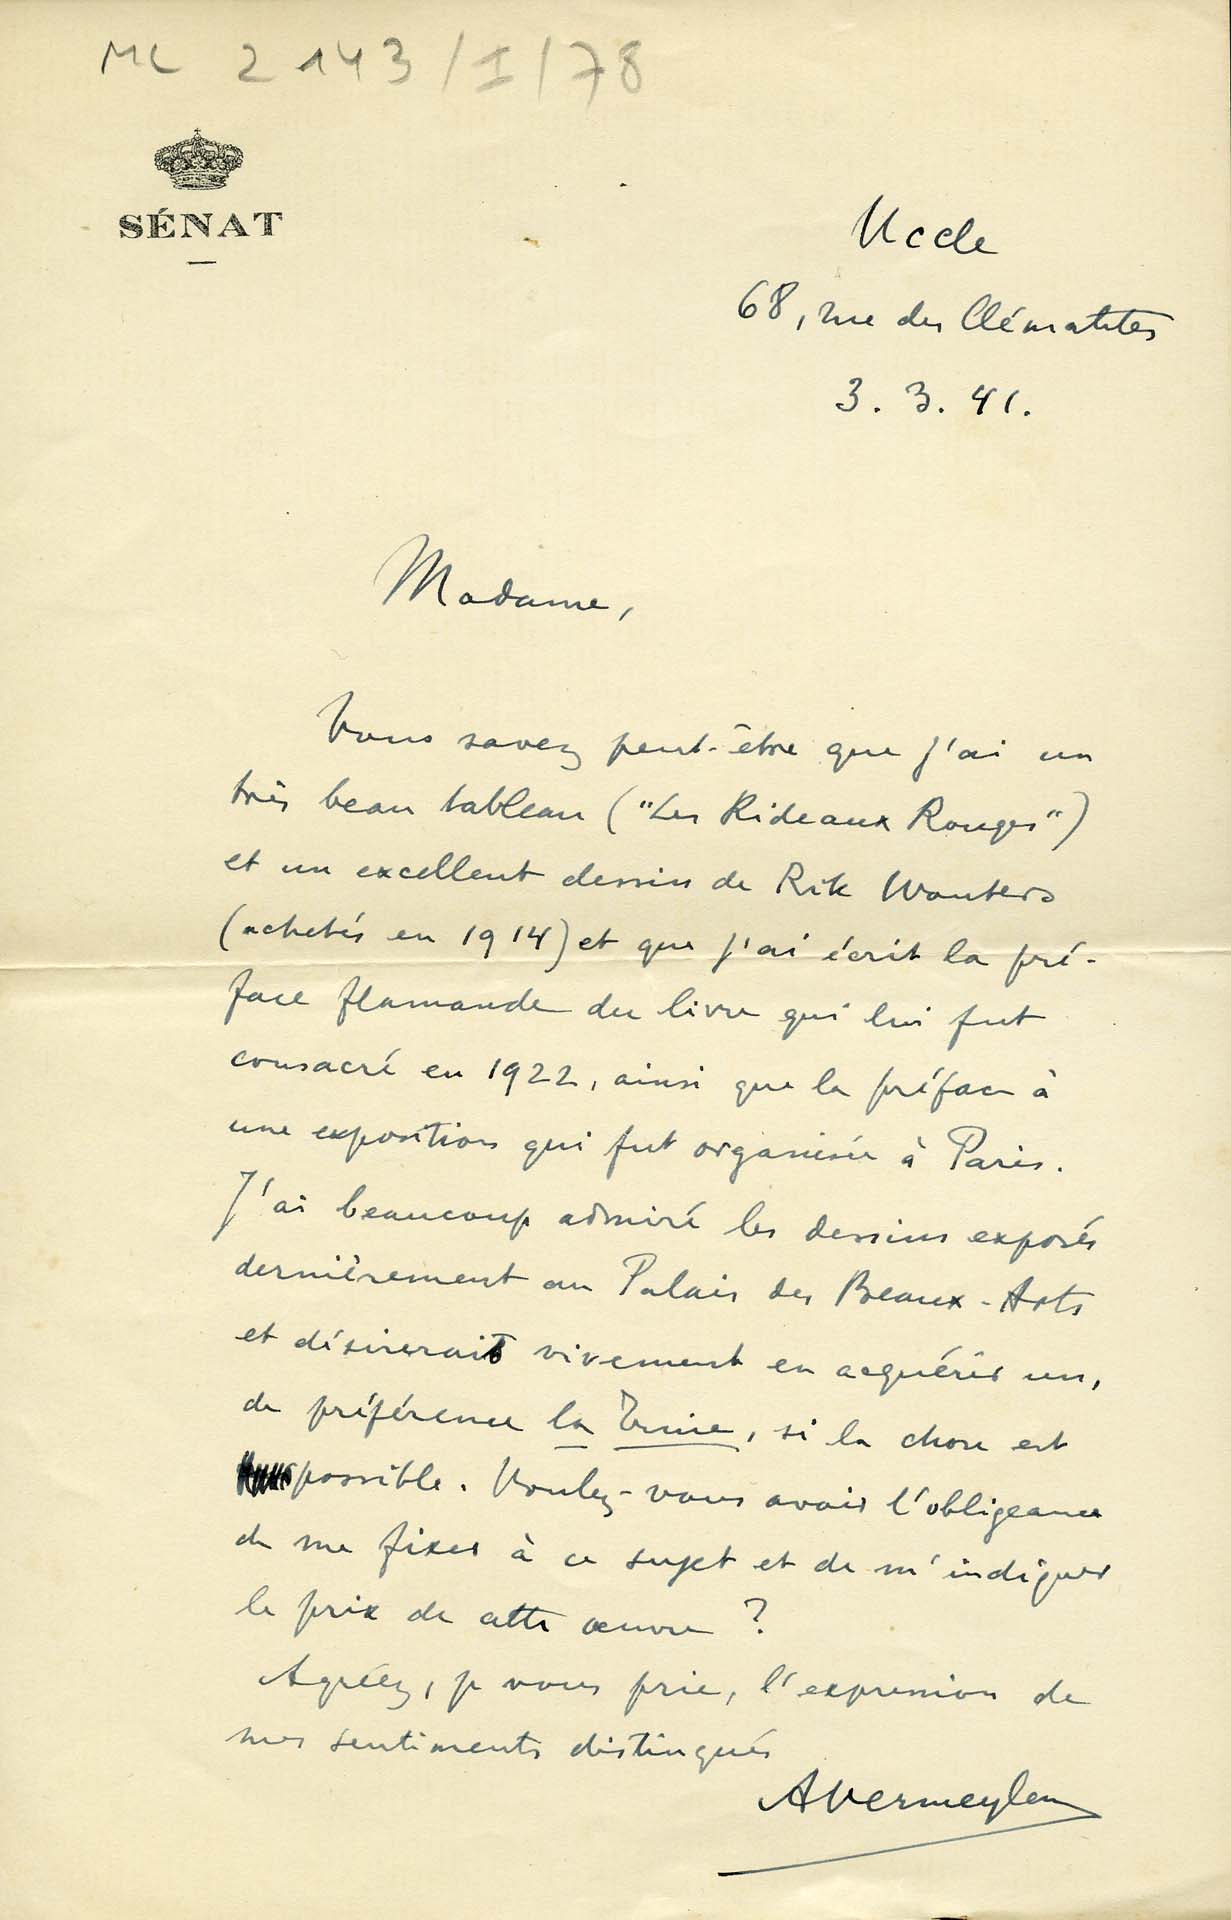 ML 2143/I/78
SÉNAT
Uccle
68, rue des Clématites
3. 3. 41.
Madame,
Vous savez peut-être que j'ai un
très beau tableau ("Les Rideaux Rouges")
et un excellent dessin de Rik Wouters
(achetés en 1914) et que j'ai écrit la pré-
face flamande du livre qui lui fut
consacré en 1922, ainsi que la préface à
une exposition qui fut organisée à Paris.
J'ai beaucoup admiré les dessins exposés
dernièrement au Palais des Beaux-Arts
et désirerait vivement en acquérir un,
de préférence la Truie, si la chose est
possible. Voulez-vous avoir l'obligeance
de me fixer à ce sujet et de m'indiquer
le prix de cette œuvre ?
Agréez, je vous prie, l'expression de
mes sentiments distingués
AVermeylen